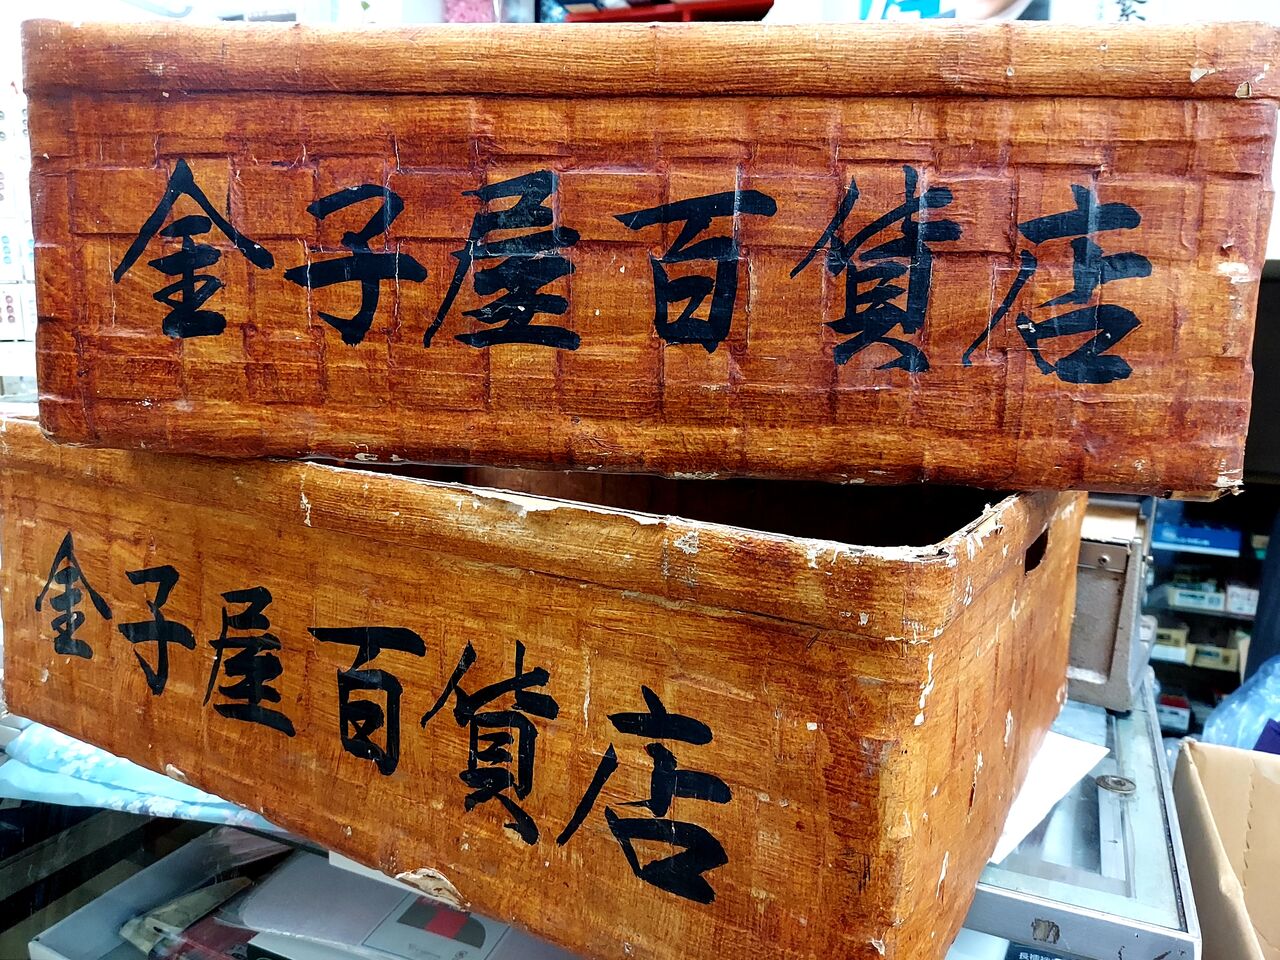 金子屋百貨店
金子屋百貨店